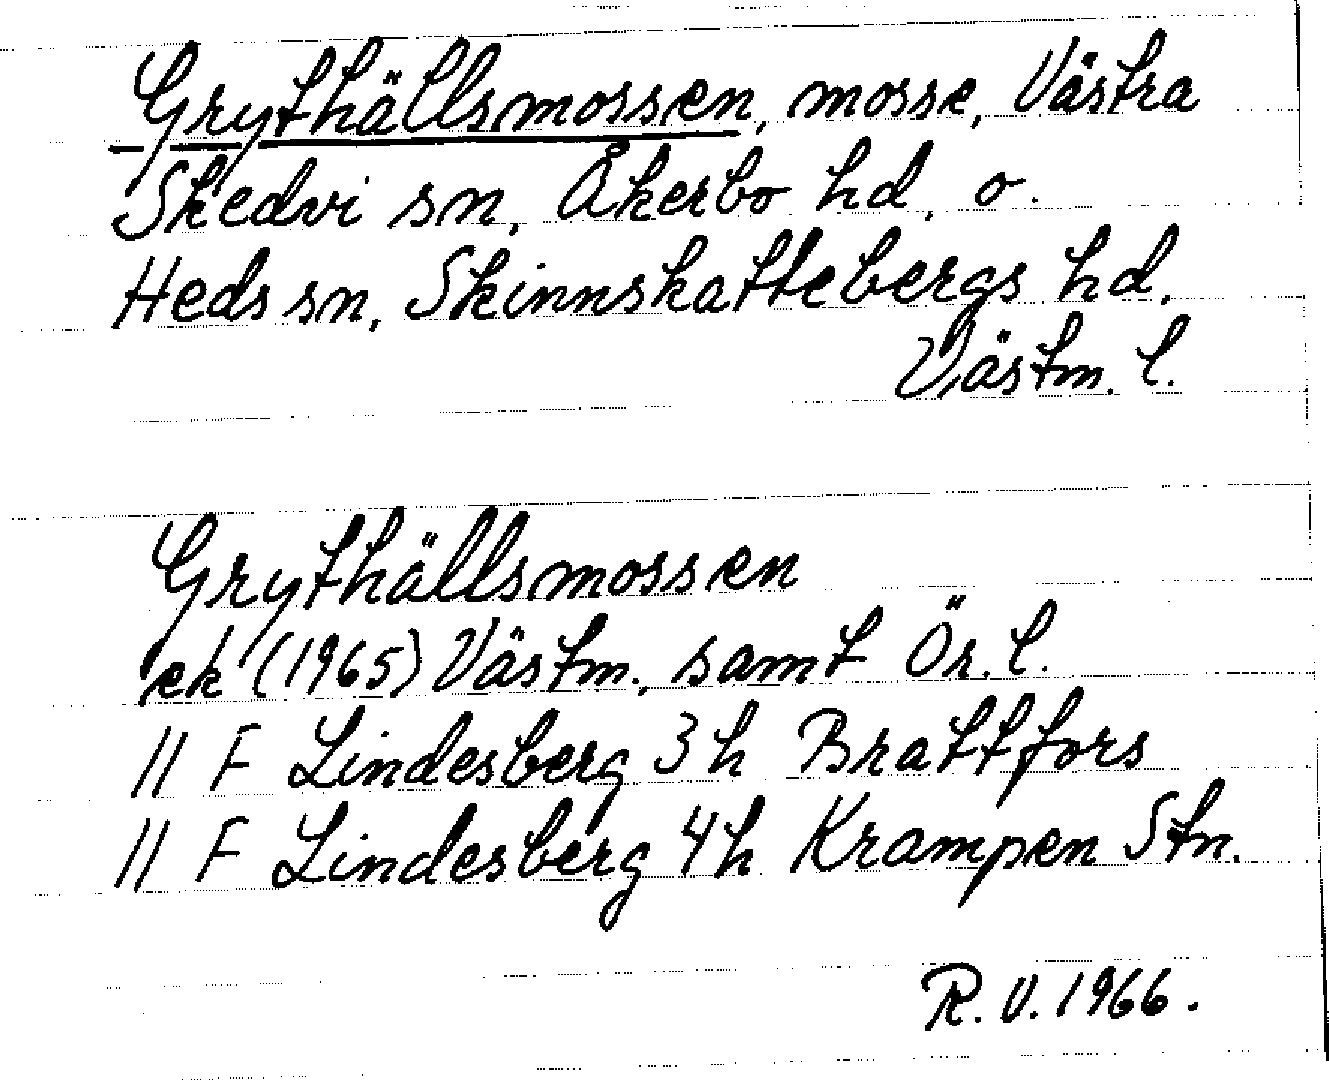 Grythällsmossen, mosse, Västra
Skedvi sn, Åkerbo hd, o.
Heds sn, Skinnskattebergs hd,
Västm. l.
Grythällsmossen
ek (1965) Västm., samt Ör. l.
11 F Lindesberg 3h Brattfors
11 F Lindesberg 4h Krampen Stn.
R. V. 1966.